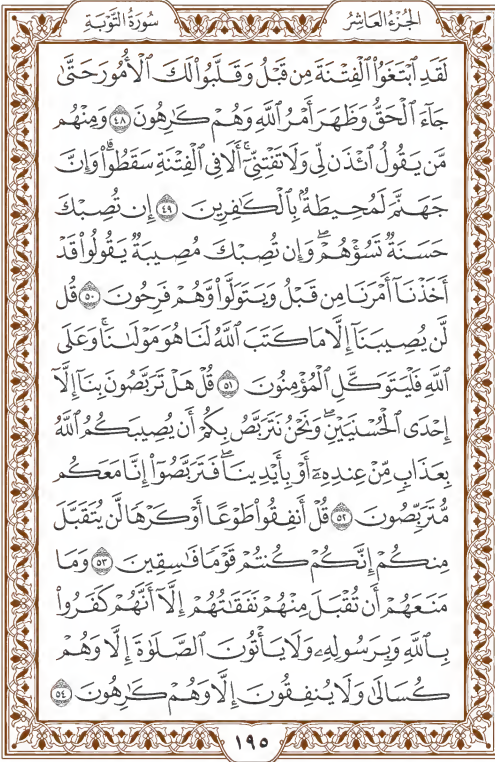 الجُزْءُ العَاشِرُ سُورَةُ التَّوْبَةِ
لَقَدِ ٱبْتَغَوُا۟ ٱلْفِتْنَةَ مِن قَبْلُ وَقَلَّبُوا۟ لَكَ ٱلْأُمُورَ حَتَّىٰ
جَآءَ ٱلْحَقُّ وَظَهَرَ أَمْرُ ٱللَّهِ وَهُمْ كَـٰرِهُونَ ٤٨ وَمِنْهُم
مَّن يَقُولُ ٱئْذَن لِّى وَلَا تَفْتِنِّىٓ ۚ أَلَا فِى ٱلْفِتْنَةِ سَقَطُوا۟ ۗ وَإِنَّ
جَهَنَّمَ لَمُحِيطَةٌۢ بِٱلْكَـٰفِرِينَ ٤٩ إِن تُصِبْكَ
حَسَنَةٌ تَسُؤْهُمْ ۖ وَإِن تُصِبْكَ مُصِيبَةٌ يَقُولُوا۟ قَدْ
أَخَذْنَآ أَمْرَنَا مِن قَبْلُ وَيَتَوَلَّوا۟ وَّهُمْ فَرِحُونَ ٥٠ قُل
لَّن يُصِيبَنَآ إِلَّا مَا كَتَبَ ٱللَّهُ لَنَا هُوَ مَوْلَىٰنَا ۚ وَعَلَى
ٱللَّهِ فَلْيَتَوَكَّلِ ٱلْمُؤْمِنُونَ ٥١ قُلْ هَلْ تَرَبَّصُونَ بِنَآ إِلَّآ
إِحْدَى ٱلْحُسْنَيَيْنِ ۖ وَنَحْنُ نَتَرَبَّصُ بِكُمْ أَن يُصِيبَكُمُ ٱللَّهُ
بِعَذَابٍ مِّنْ عِندِهِۦٓ أَوْ بِأَيْدِينَا ۖ فَتَرَبَّصُوٓا۟ إِنَّا مَعَكُم
مُّتَرَبِّصُونَ ٥٢ قُلْ أَنفِقُوا۟ طَوْعًا أَوْ كَرْهًا لَّن يُتَقَبَّلَ
مِنكُمْ ۖ إِنَّكُمْ كُنتُمْ قَوْمًا فَـٰسِقِينَ ٥٣ وَمَا
مَنَعَهُمْ أَن تُقْبَلَ مِنْهُمْ نَفَقَـٰتُهُمْ إِلَّآ أَنَّهُمْ كَفَرُوا۟
بِٱللَّهِ وَبِرَسُولِهِۦ وَلَا يَأْتُونَ ٱلصَّلَوٰةَ إِلَّا وَهُمْ
كُسَالَىٰ وَلَا يُنفِقُونَ إِلَّا وَهُمْ كَـٰرِهُونَ ٥٤
١٩٥